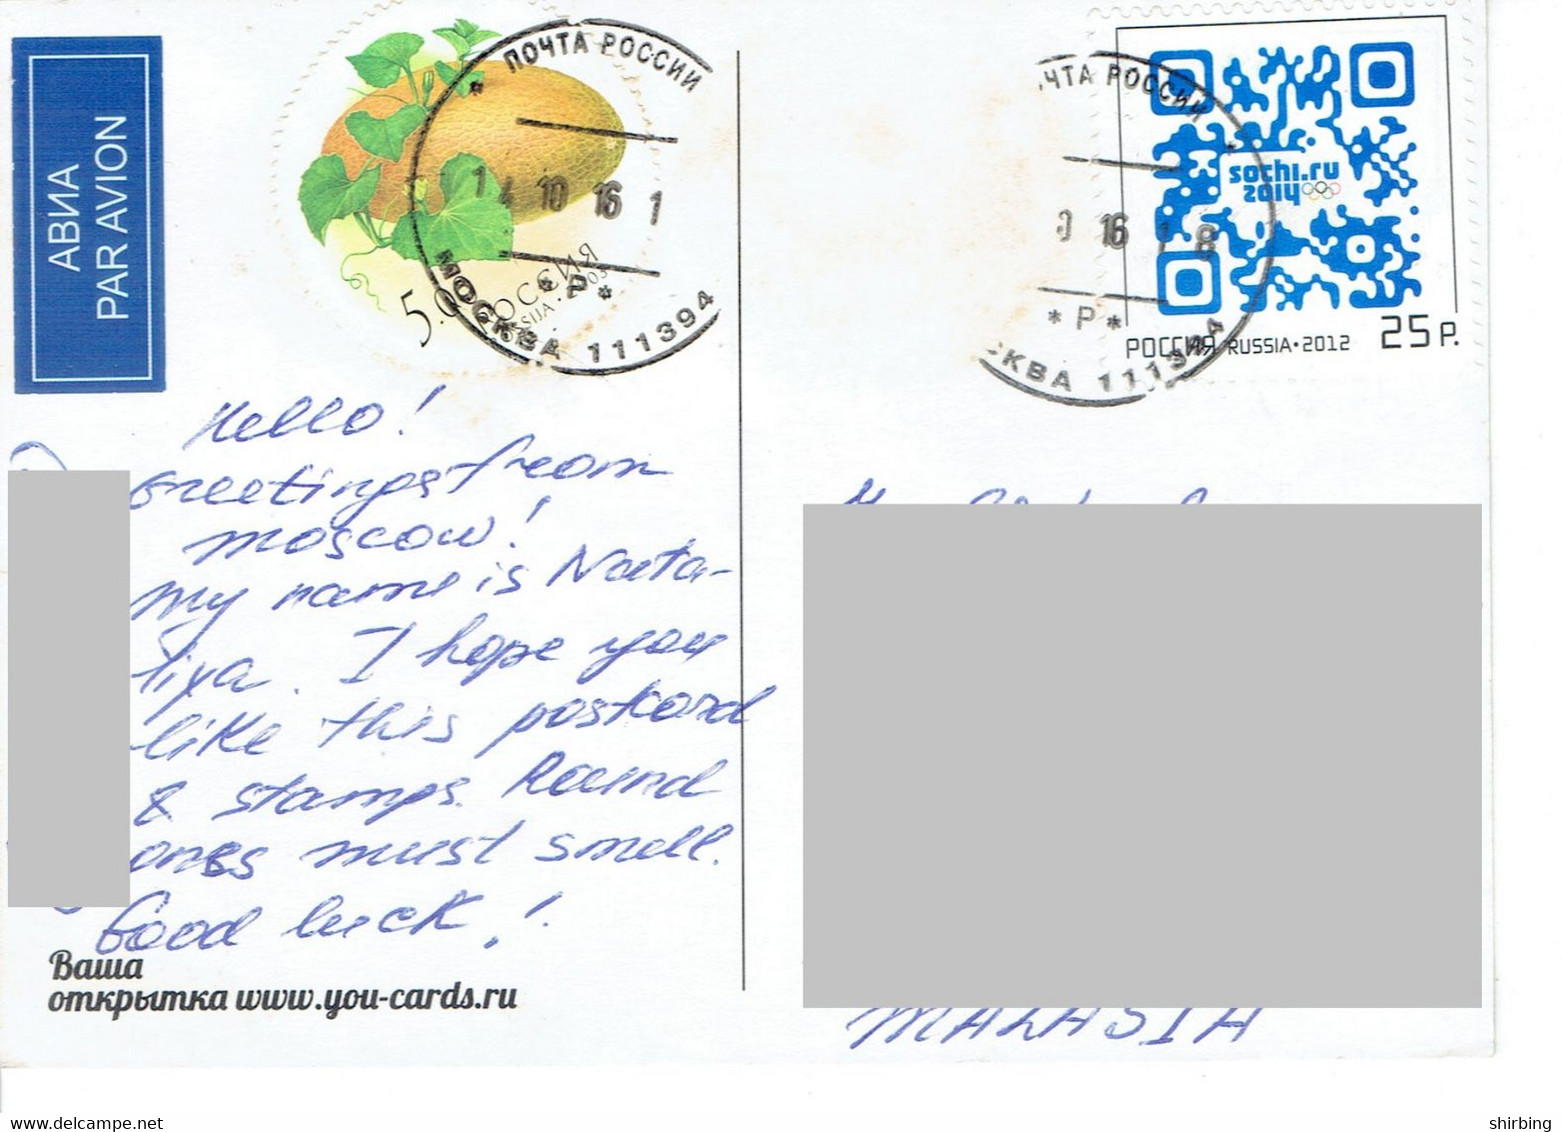 АВИА
PAR AVION
* ПОЧТА РОССИИ
14 10 16 1
* Р *
МОСКВА 111394
РОССИЯ
ЧТА РОССИИ
16 18
* Р *
КВА 111394
sochi.ru
2014
РОССИЯ RUSSIA•2012 25 Р.
Hello!
Greetings from
Moscow!
My name is Nata-
liya. I hope you
like this postcard
& stamps. Round
ones must smell.
Good luck!
MALASIA
Ваша
открытка www.you-cards.ru
shirbing